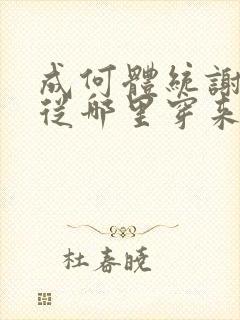 成何體統謝
從哪里穿来
杜春曉